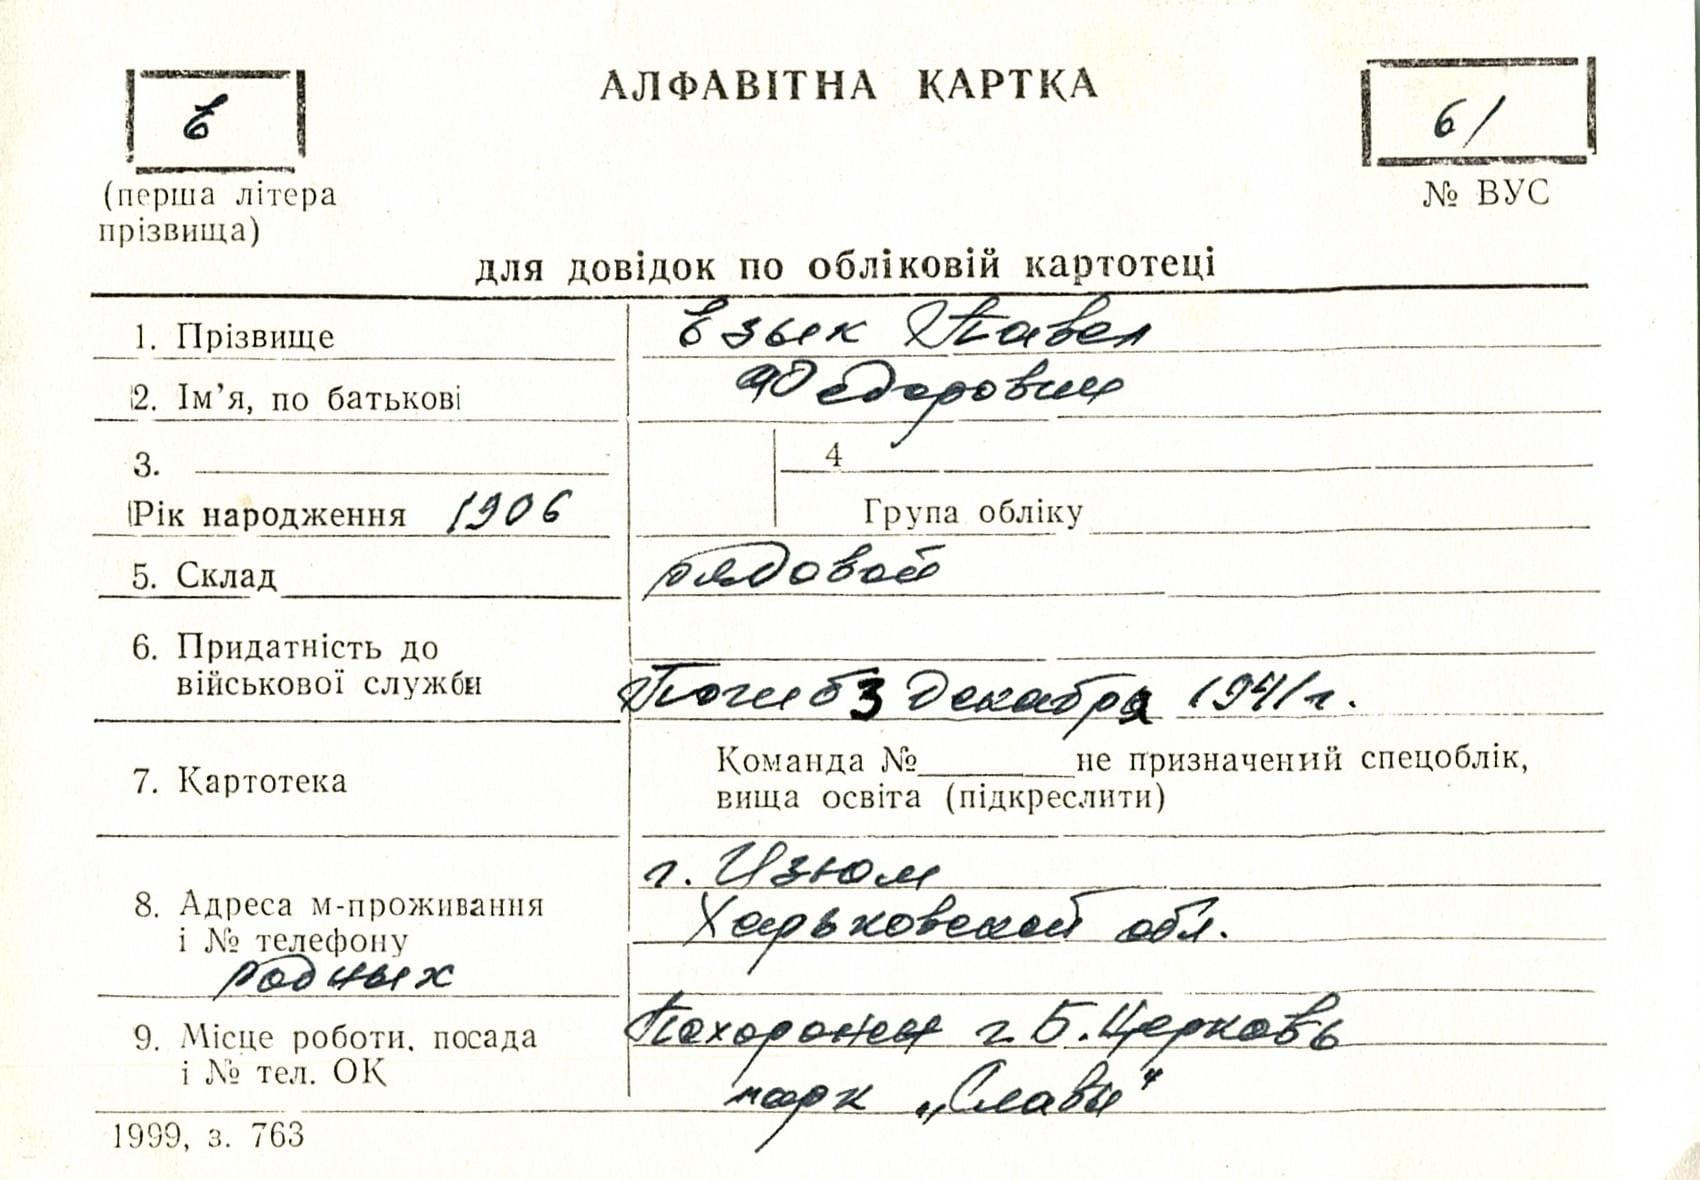 Е
АЛФАВІТНА КАРТКА
б/
(перша літера
прізвища)
№ ВУС
для довідок по обліковій картотеці
1. Прізвище Езык Павел
2. Ім’я, по батькові Федорович
3. 4
Рік народження 1906 Група обліку
5. Склад рядовой
6. Придатність до
військової служби Погиб 3 декабря 1941 г.
7. Картотека
Команда № не призначений спецоблік,
вища освіта (підкреслити)
г. Изюм
8. Адреса м-проживання Харьковской обл.
і № телефону
родных
9. Місце роботи, посада Похоронен г. Б. Церковь
і № тел. ОК парк „Славы“
1999, з. 763